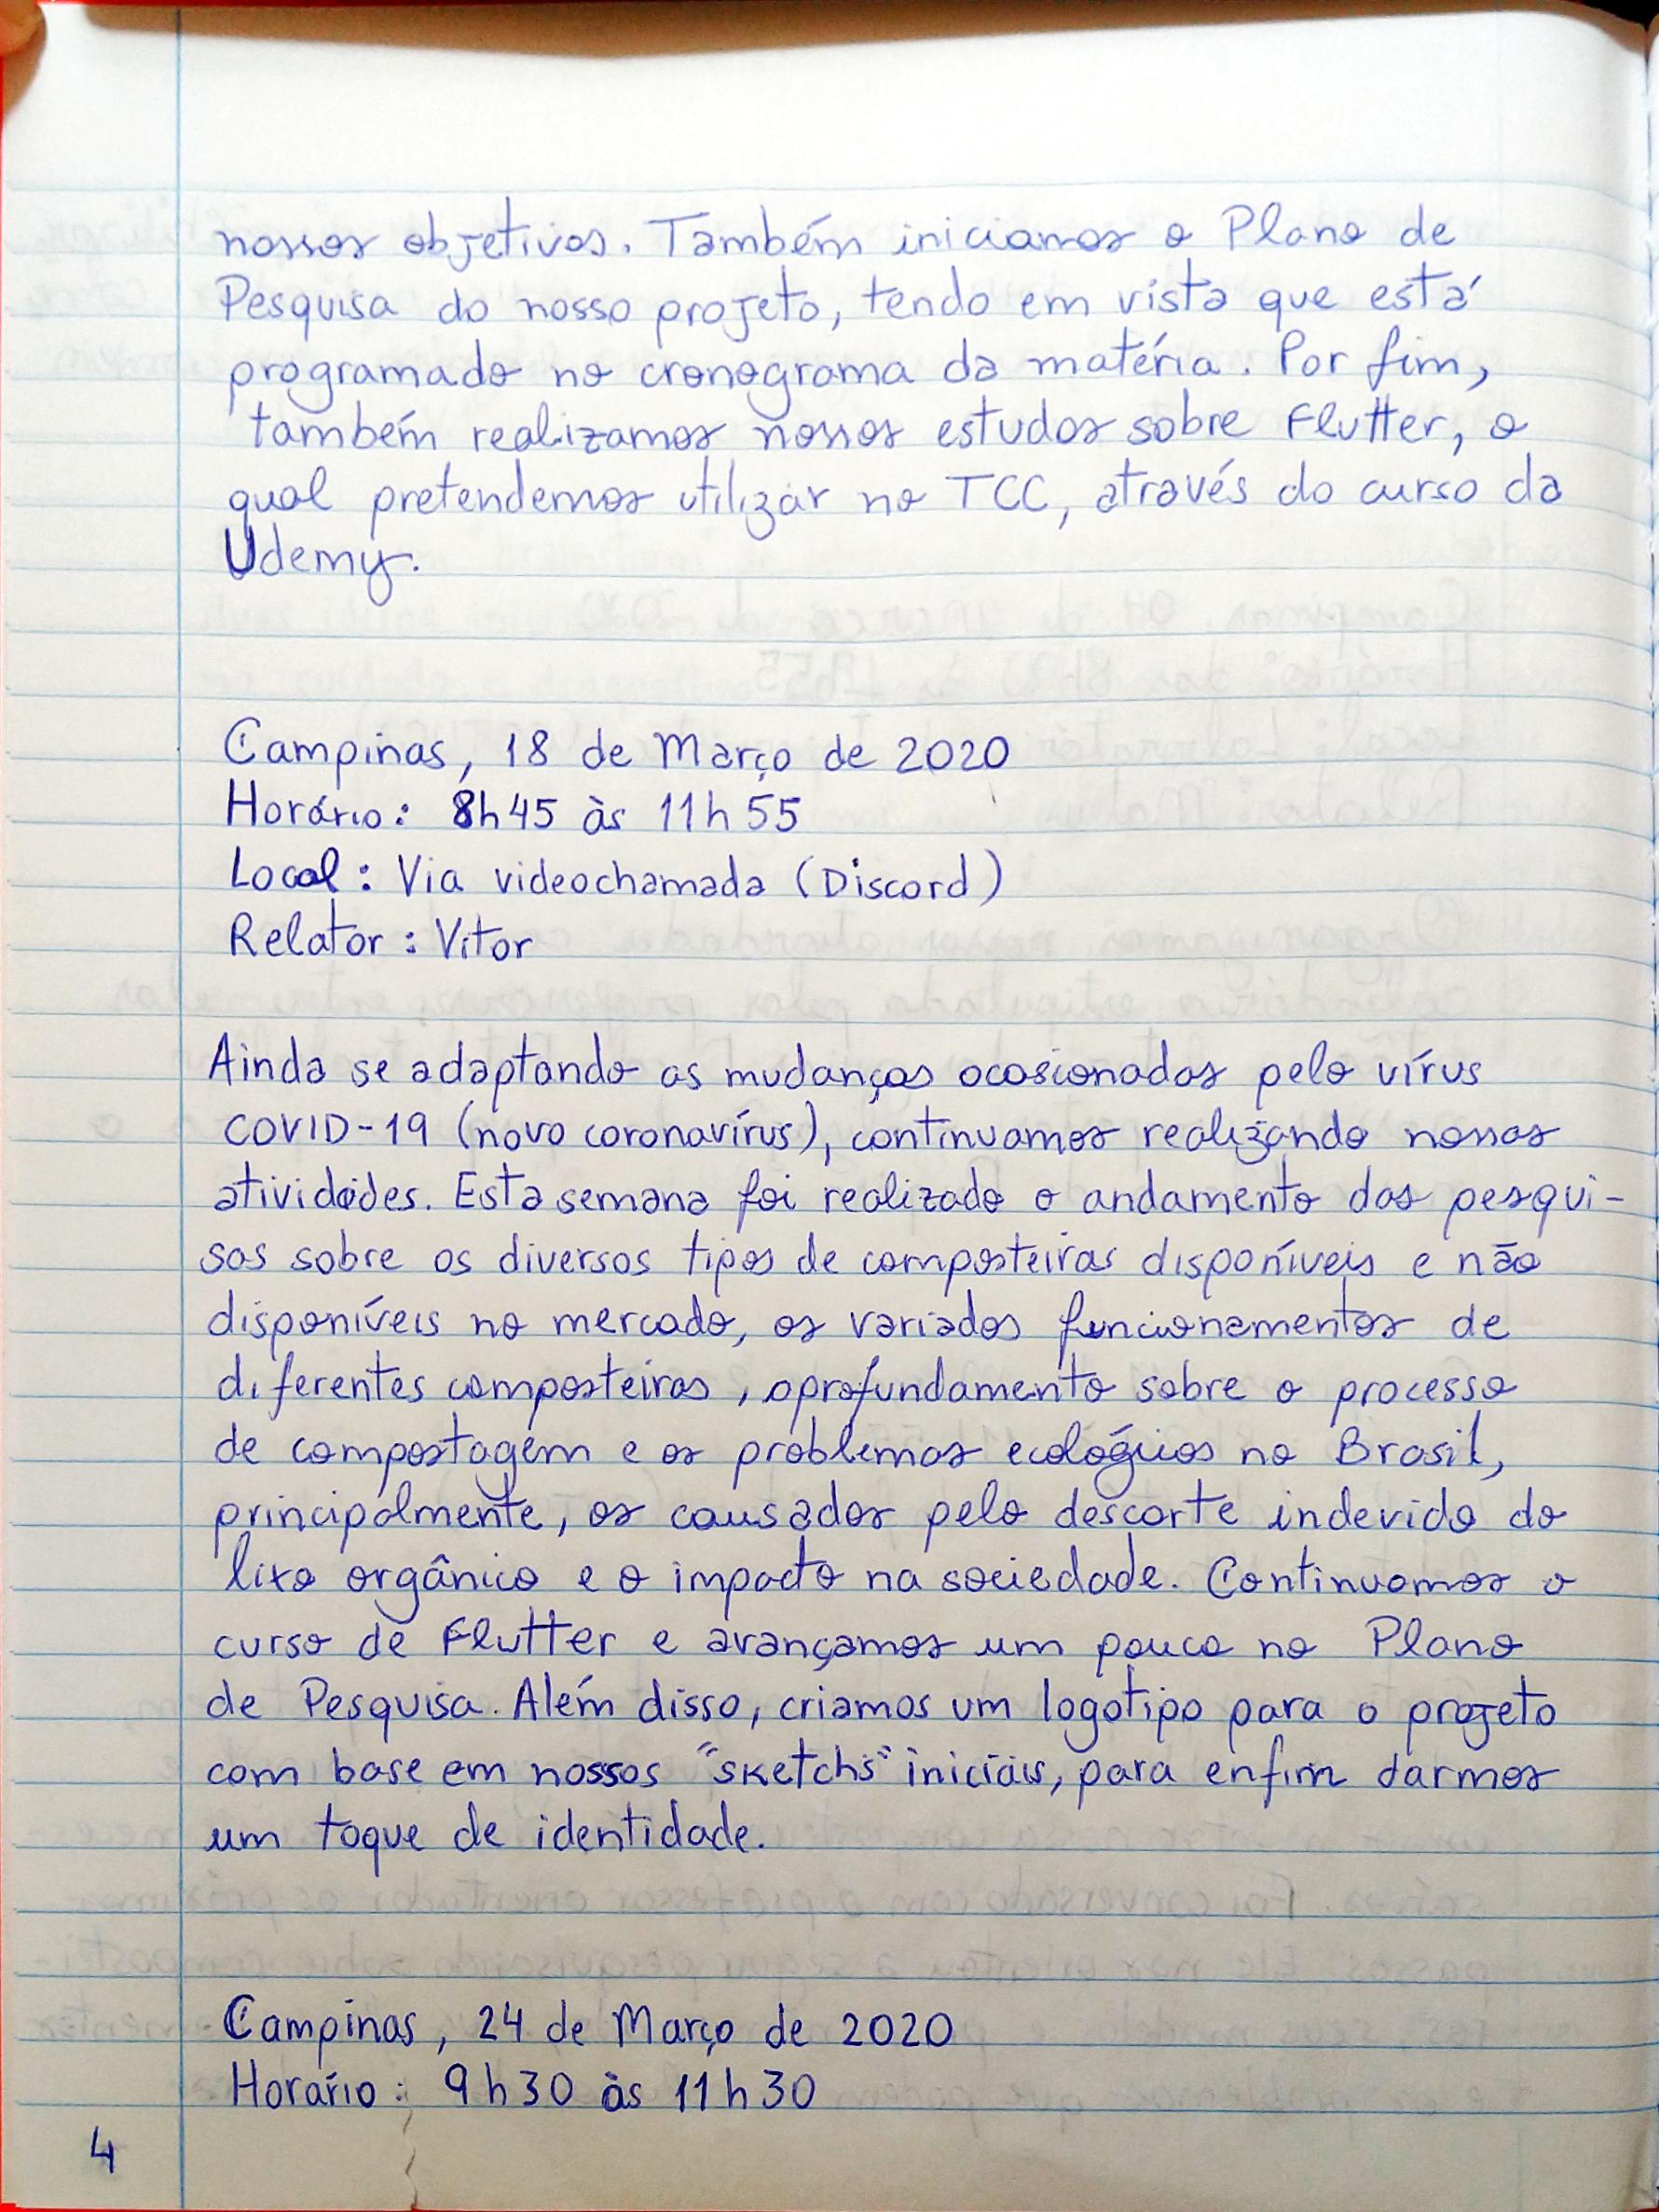 nossos objetivos. Também iniciamos o Plano de
Pesquisa do nosso projeto, tendo em vista que está
programado no cronograma da matéria. Por fim,
também realizamos nossos estudos sobre Flutter, o
qual pretendemos utilizar no TCC, através do curso da
Udemy.
Campinas, 18 de Março de 2020
Horário: 8h45 às 11h55
Local: Via videochamada (Discord)
Relator: Vitor
Ainda se adaptando as mudanças ocasionadas pelo vírus
COVID-19 (novo coronavírus), continuamos realizando nossas
atividades. Esta semana foi realizado o andamento das pesqui-
sas sobre os diversos tipos de composteiras disponíveis e não
disponíveis no mercado, os variados funcionamentos de
diferentes composteiras, aprofundamento sobre o processo
de compostagem e os problemas ecológicos no Brasil,
principalmente, os causados pelo descarte indevido do
lixo orgânico e o impacto na sociedade. Continuamos o
curso de Flutter e avançamos um pouco no Plano
de Pesquisa. Além disso, criamos um logotipo para o projeto
com base em nossos "sketchs" iniciais, para enfim darmos
um toque de identidade.
Campinas, 24 de Março de 2020
Horário: 9h30 às 11h30
4